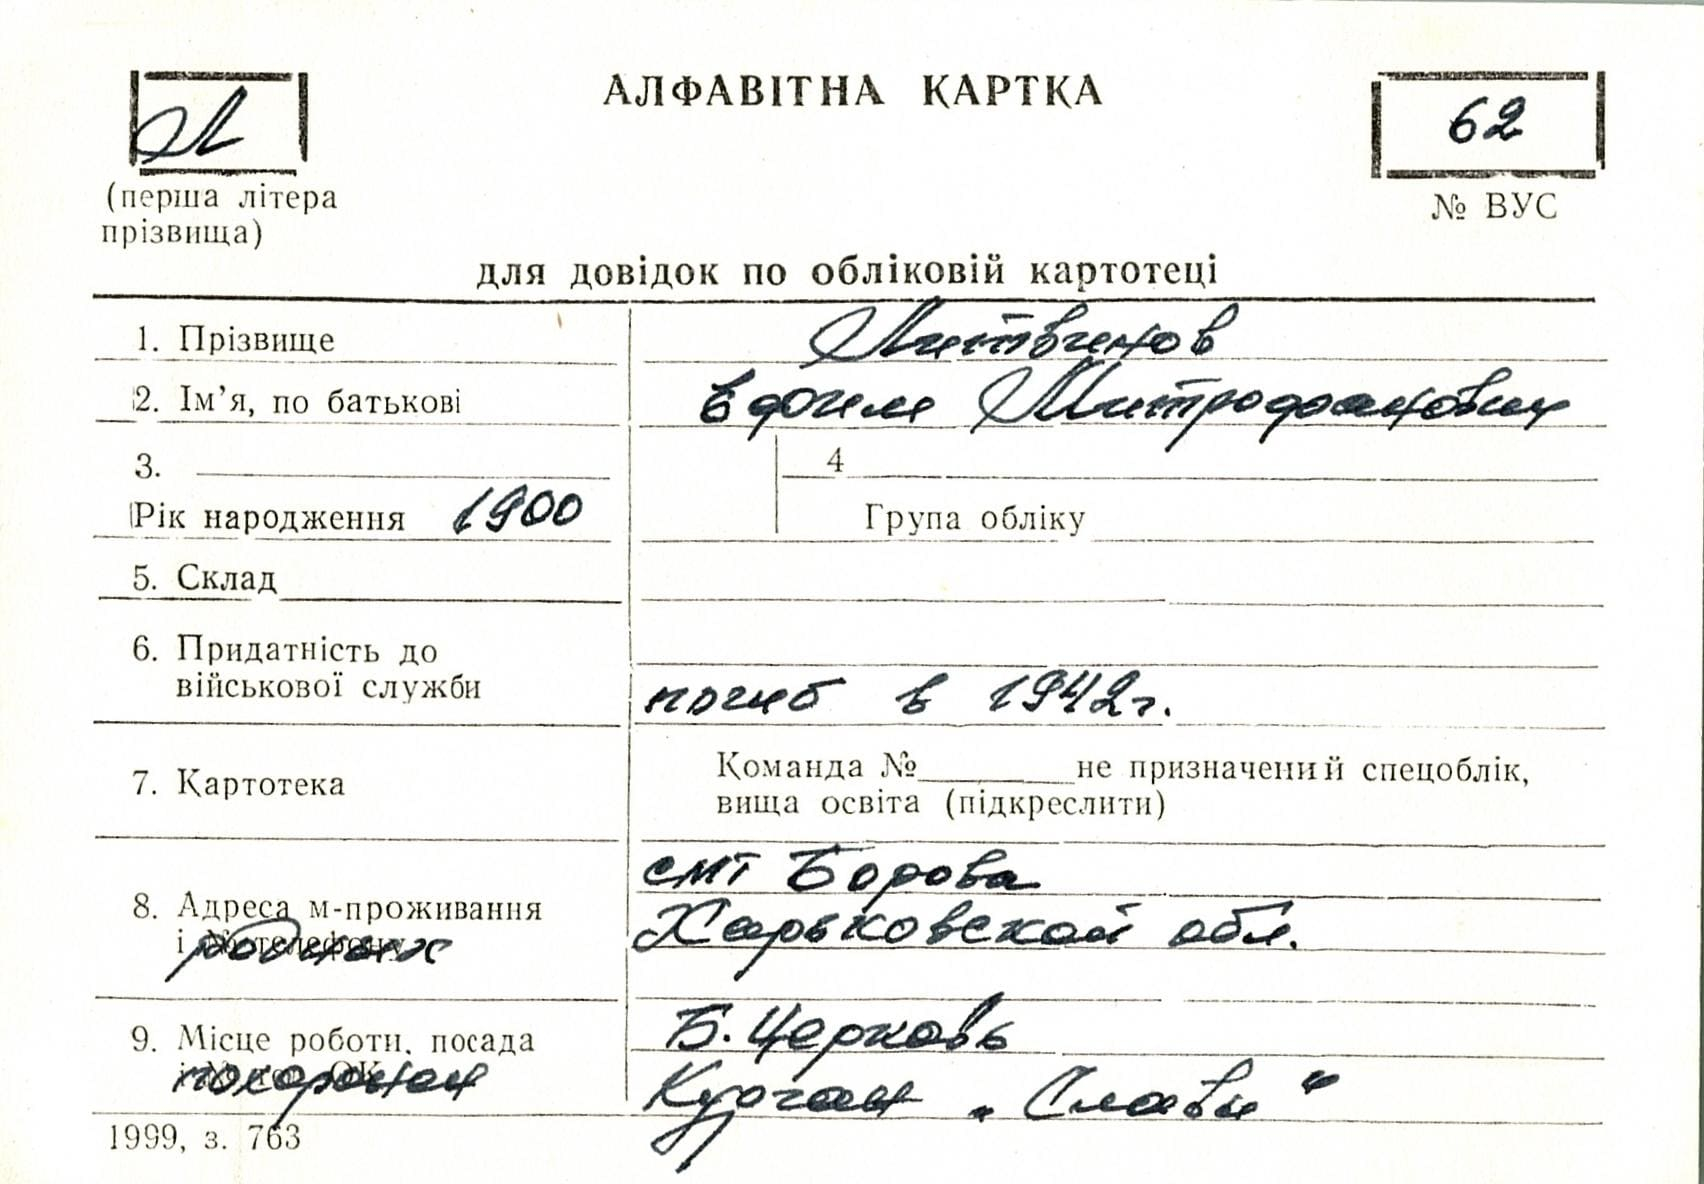 Л
АЛФАВІТНА КАРТКА
62
(перша літера
прізвища)
№ ВУС
для довідок по обліковій картотеці
1. Прізвище Литвинов
2. Ім’я, по батькові Ефим Митрофанович
3.
4
Рік народження 1900
Група обліку
5. Склад
6. Придатність до
військової служби погиб в 1942г.
7. Картотека
Команда №______не призначений спецоблік,
вища освіта (підкреслити)
8. Адреса м-проживання
і № телефону
родных
смт Борова
Харьковской обл.
9. Місце роботи, посада
похоронен
Б. Церковь
Курган „Славы“
1999, з. 763